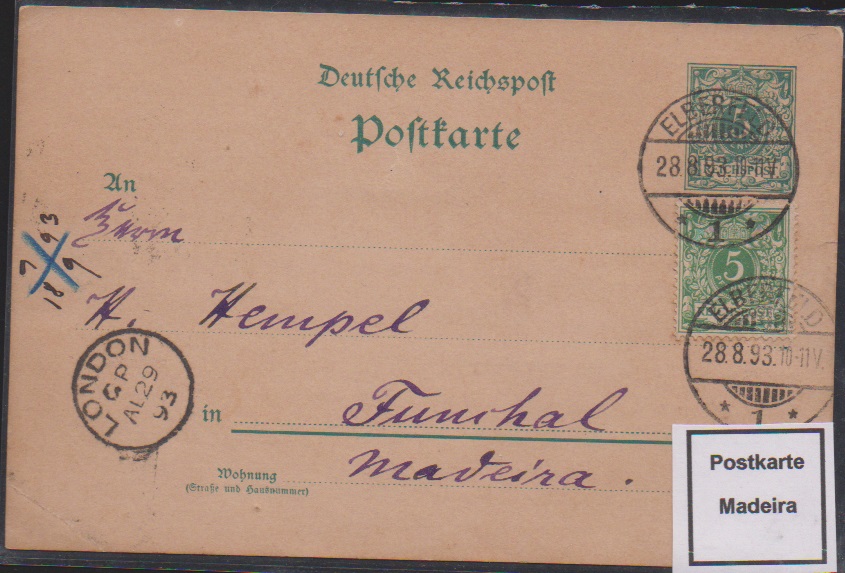 Deutsche Reichspost
Postkarte
ELBERFELD
28.8.93.10-11V.
* 1 *
An
Herrn
H. Hempel
in Funchal
Madeira.
Wohnung
(Straße und Hausnummer)
5
ELBERFELD
28.8.93.10-11V.
* 1 *
LONDON
AU 29
93
7 93
18 9
Postkarte
Madeira